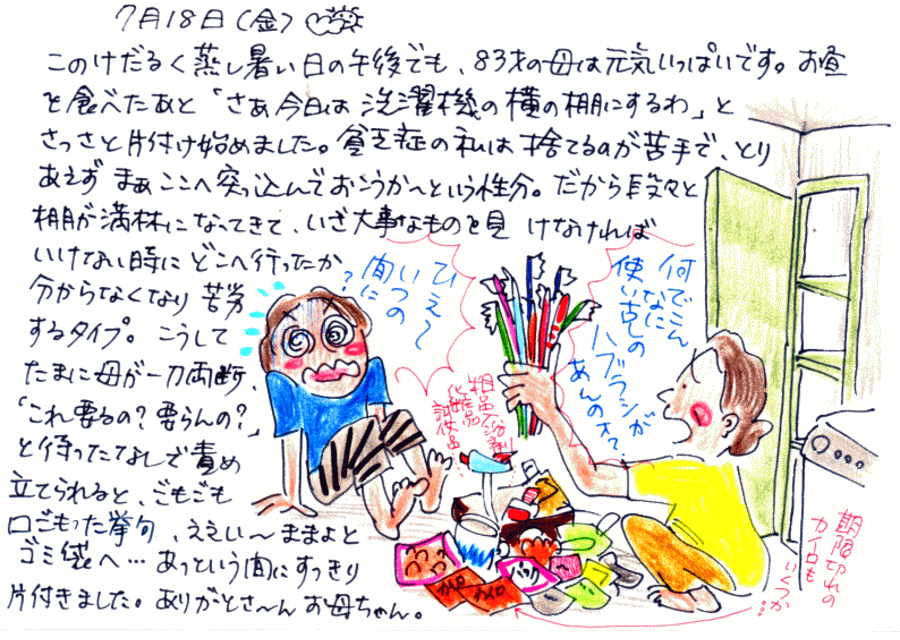 7月18日(金)
このけだるく蒸し暑い日の午後でも、83才の母は元気いっぱいです。お昼
を食べたあと「さあ今日は洗濯機の横の棚にするわ」と
さっさと片付け始めました。貧乏症の私は捨てるのが苦手で、とり
あえず まぁここへ突っ込んでおこうか〜という性分。だから段々と
棚が満杯になってきて、いざ大事なものを見 けなければ
いけない時にどこへ行ったか
分からなくなり苦労
するタイプ。こうして
たまに母が一刀両断、
「これ要るの?要らんの?」
と待ったなしで責め
立てられると、ごもごも
口ごもった挙句、ええい〜ままよと
ゴミ袋へ…あっという間にすっきり
片付きました。ありがとさ〜ん お母ちゃん。
ひえ〜
いつの
間に?
何でこん
なに
使い古しの
ハブラシが
あんのオ?
粗品
化粧品
試供品…
パック
カイロ
期限切れの
カイロも
いくつか…